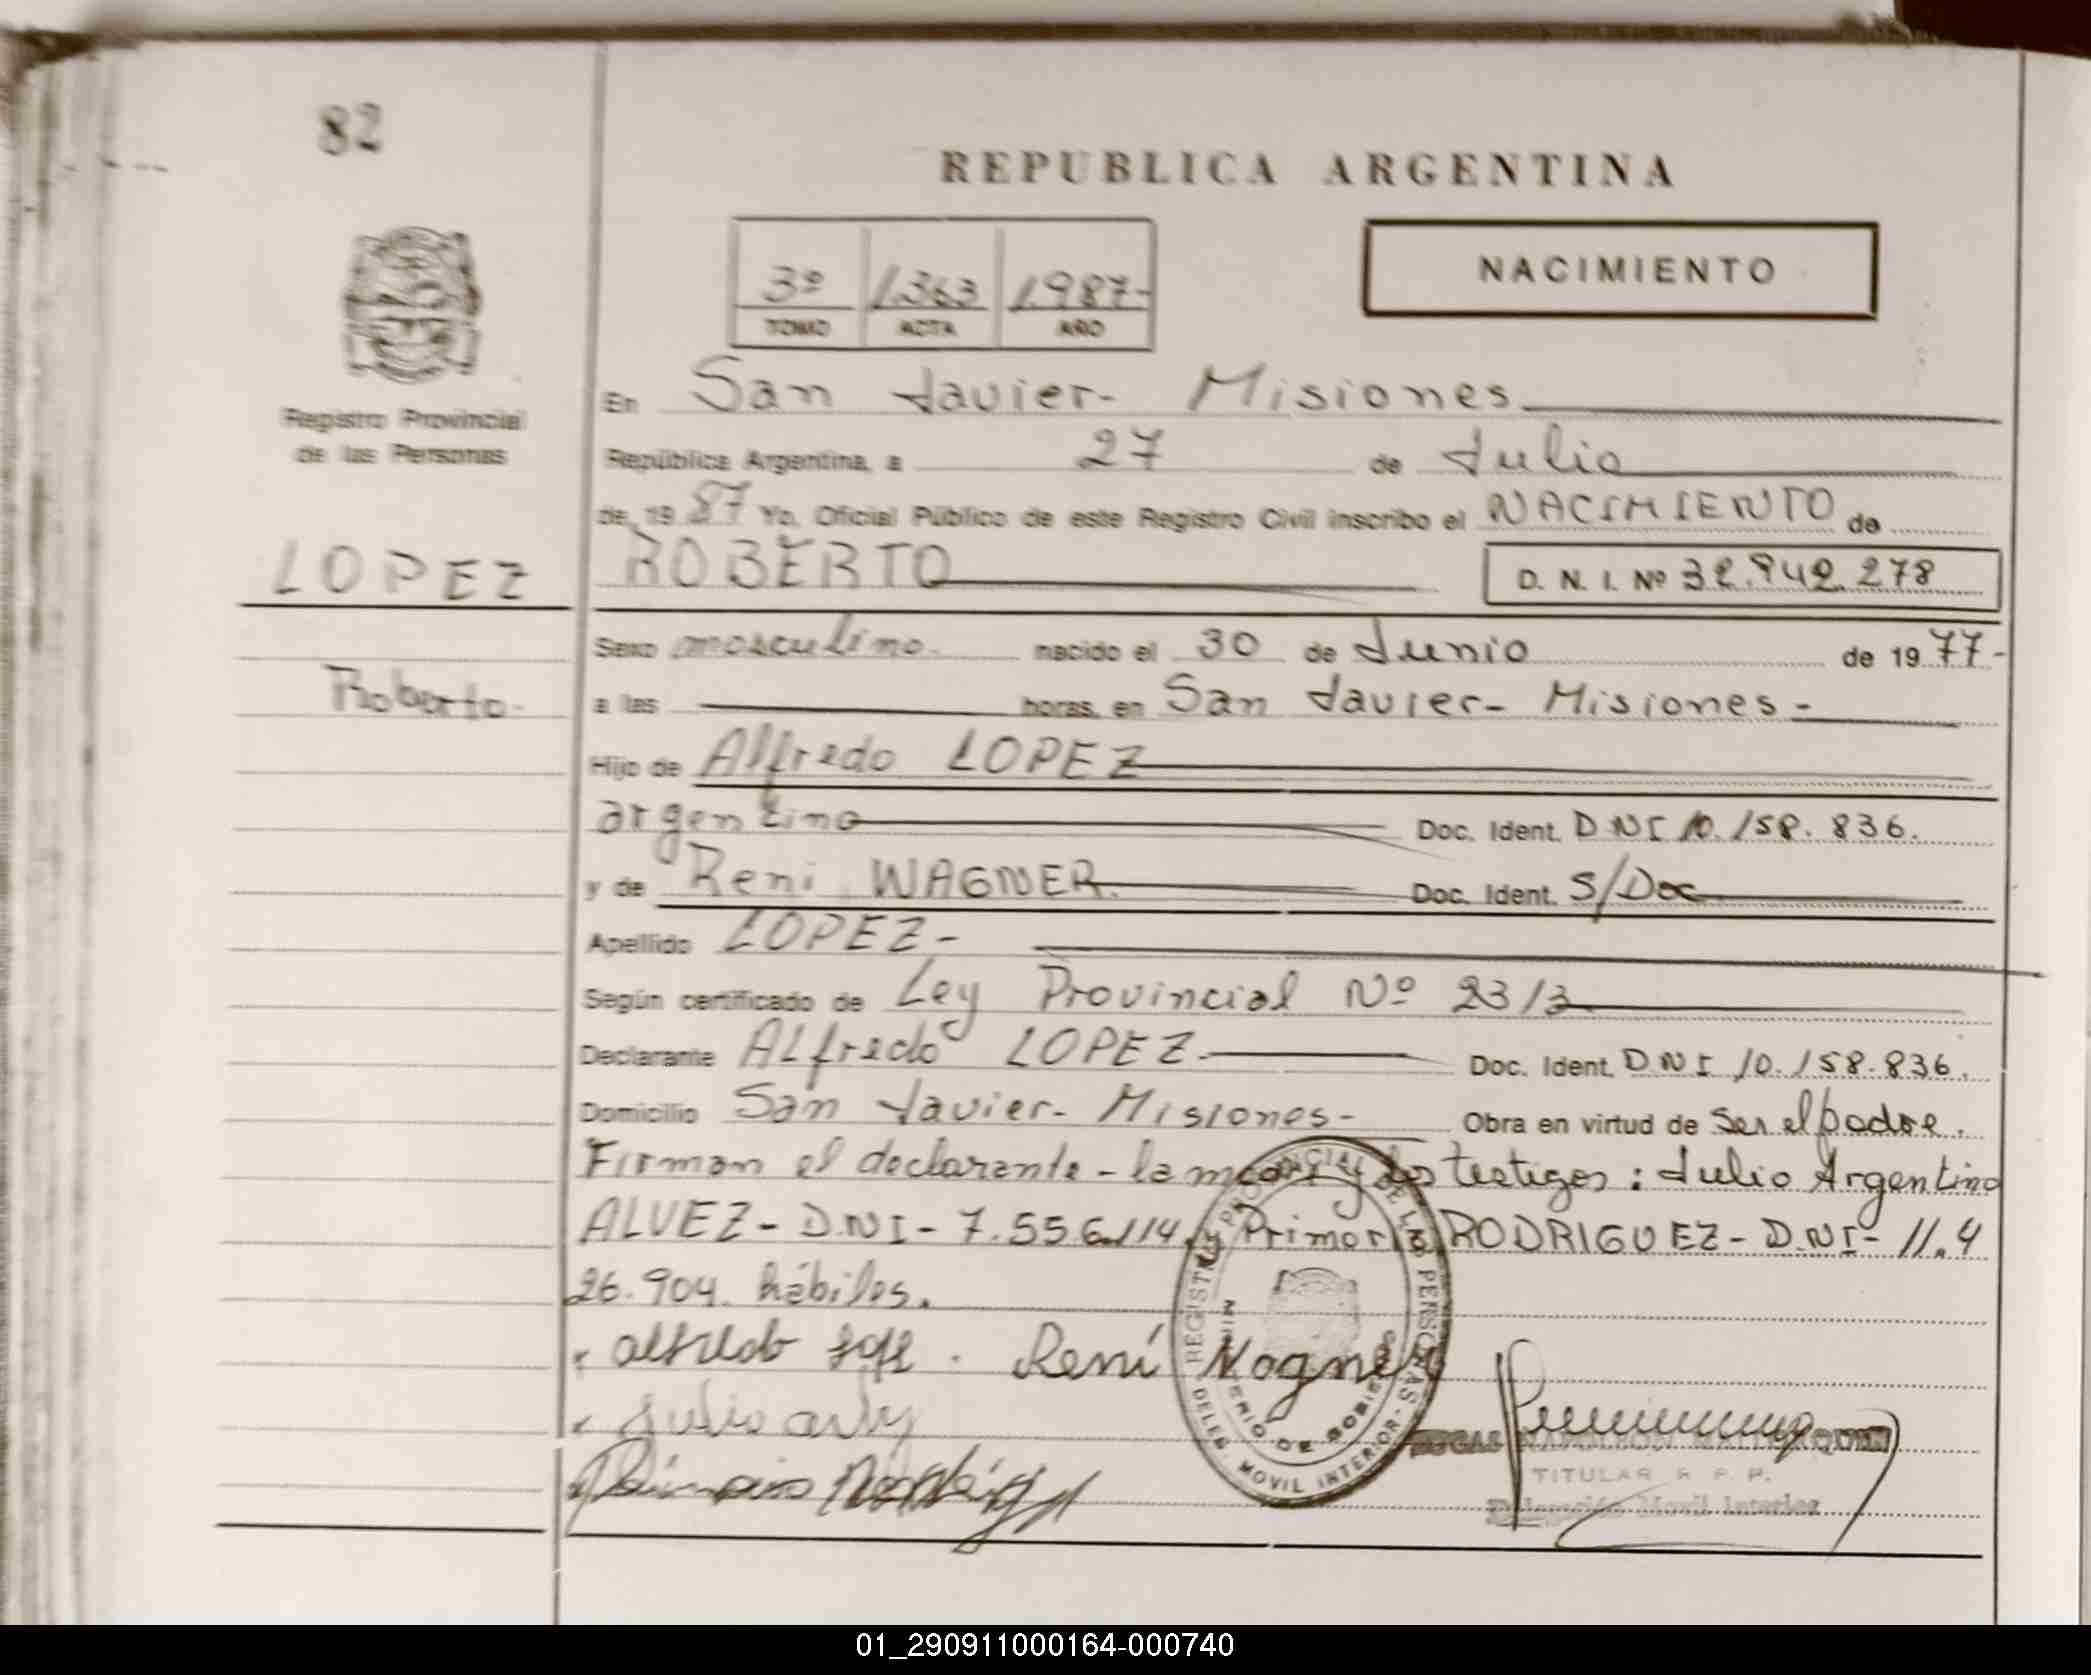 82
REPUBLICA ARGENTINA
NACIMIENTO
3º 1.363 1.987-
TOMO ACTA AÑO
Registro Provincial
de las Personas
En San Javier- Misiones
República Argentina, a 27 de Julio
de 19 87 Yo, Oficial Público de este Registro Civil inscribo el NACIMIENTO de
LOPEZ ROBERTO D. N. I. Nº 32.942.278
Sexo masculino. nacido el 30 de Junio de 19 77-
Roberto- a las horas, en San Javier- Misiones-
Hijo de Alfredo LOPEZ
argentino Doc. Ident. DNI 10.158.836.
y de Reni WAGNER. Doc. Ident. S/Doc
Apellido LOPEZ-
Según certificado de Ley Provincial Nº 2313
Declarante ALfredo LOPEZ- Doc. Ident. DNI 10.158.836.
Domicilio San Javier- Misiones- Obra en virtud de ser el padre.
Firman el declarante - la y los testigos: Julio Argentino
ALVEZ - D.NI - 7.556.114 y RODRIGUEZ - D.NI - 11.4
26.904. hábiles.
REGISTRO PROVINCIAL DE LAS PERSONAS
MINISTERIO DE GOBIERNO
DELEG. MOVIL INTERIOR
Alfredo Rení Wagner
Julio
TITULAR R. P. P.
Delegación Movil Interior
01_290911000164-000740